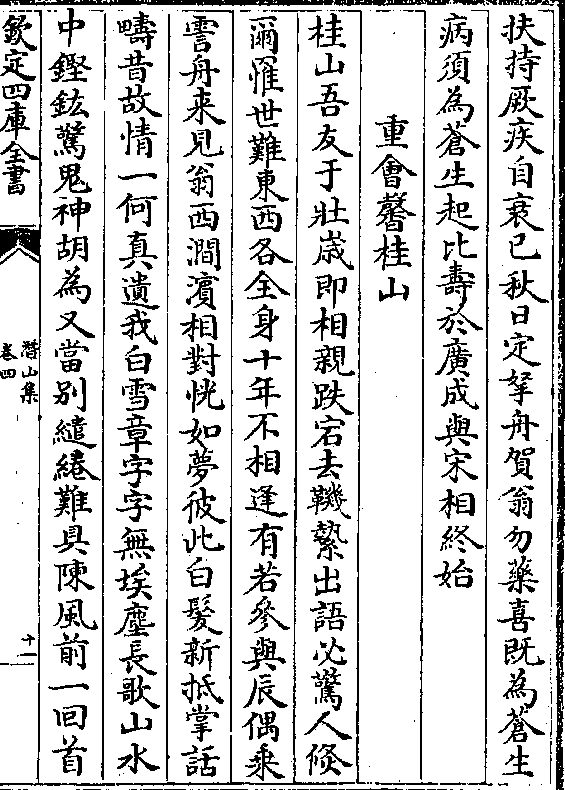 扶持厥疾自衰已秋日定拏舟賀翁勿藥喜既為蒼生
病須為蒼生起比壽於廣成與宋相終始
重會謦桂山
桂山吾友于壯嵗即相親跌宕去鞿縶出語必驚人倐
爾罹世難東西各全身十年不相逢有若參與辰偶乗
雪舟来見翁西澗濵相對恍如夢彼此白髮新抵掌話
疇昔故情一何真遺我白雪章字字無埃塵長歌山水
中鏗鈜驚鬼神胡為又當别繾綣難具陳風前一回首
欽定四庫全書
潛山集
卷四
十一